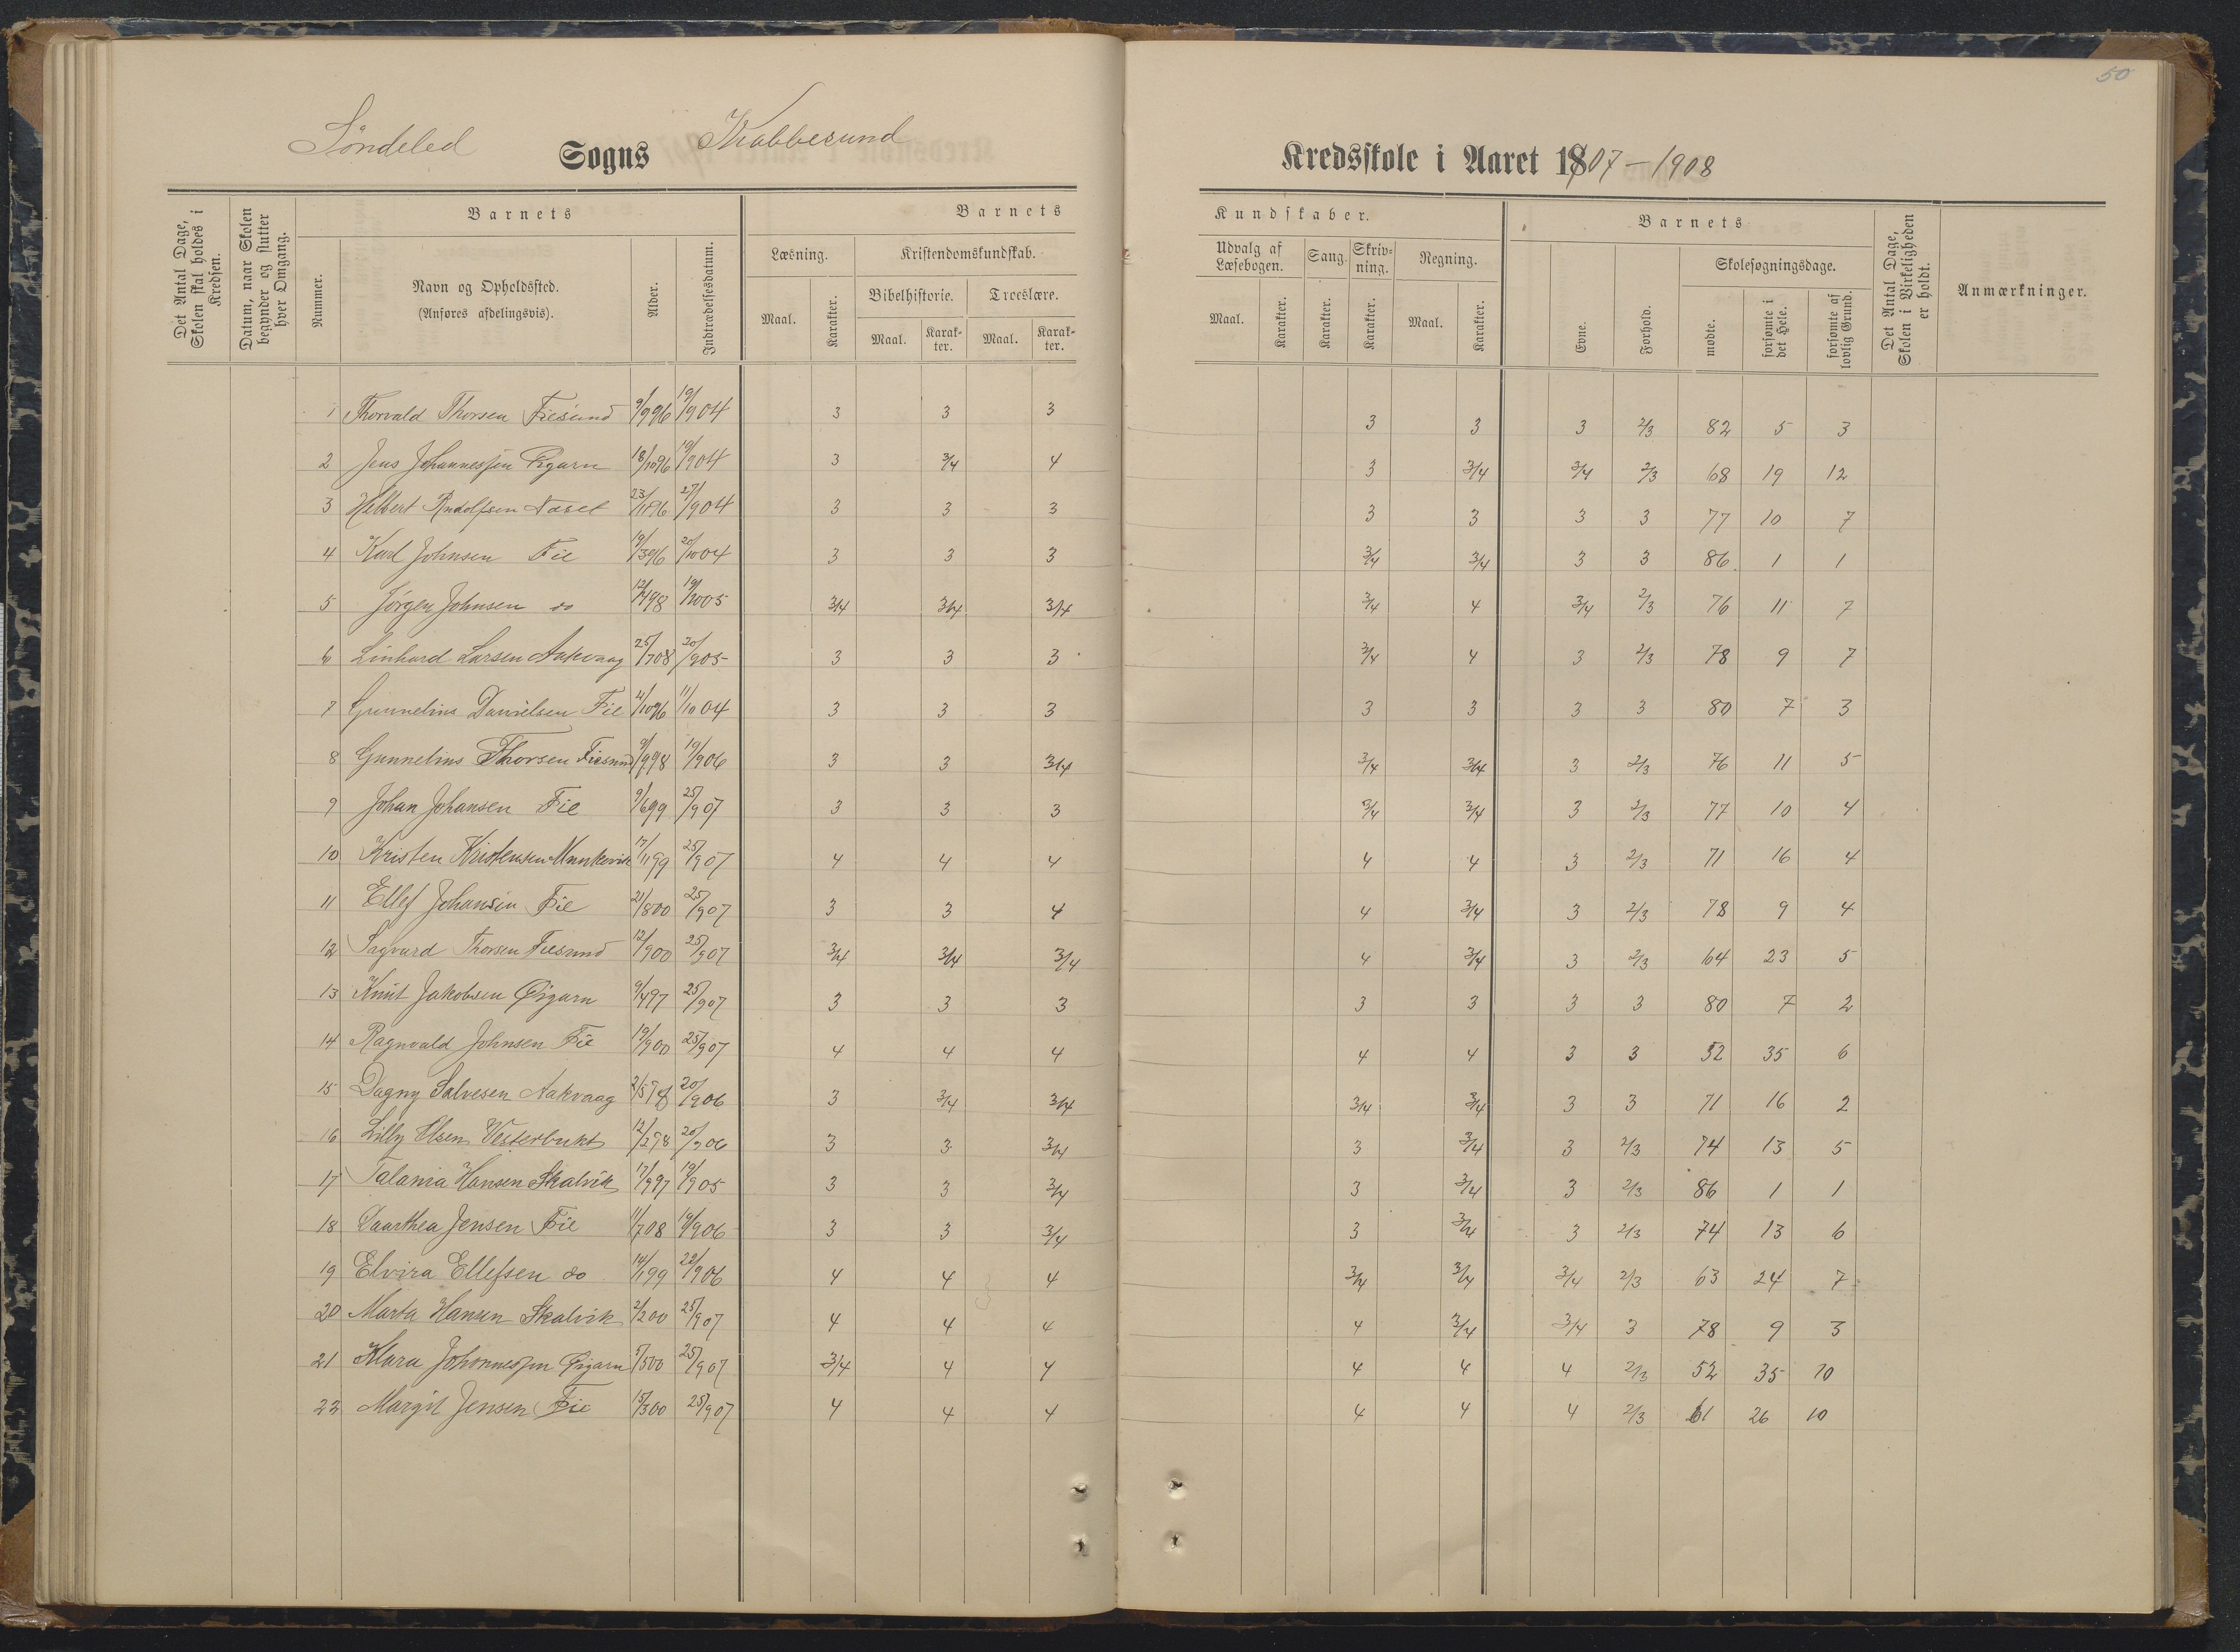 50
Söndeled Sogns Krabbesund Kredsskole i Aaret 1907-1908
Det Antal Dage, Skolen skal holdes i Kredsen.
Datum, naar Skolen begynder og slutter hver Omgang.
Barnets
Nummer.
Navn og Opholdssted.
(Anføres afdelingsvis).
Alder.
Indtrædelsesdatum.
Barnets Kundskaber.
Læsning.
Maal.
Karakter.
Kristendomskundskab.
Bibelhistorie.
Maal.
Karakter.
Troeslære.
Maal.
Karakter.
Udvalg af Læsebogen.
Maal.
Karakter.
Sang.
Karakter.
Skrivning.
Karakter.
Regning.
Maal.
Karakter.
Barnets
Evne.
Forhold.
Skolesøgningsdage.
mødte.
forsømte i det Hele.
forsømte af lovlig Grund.
Det Antal Dage, Skolen i Virkeligheden er holdt.
Anmærkninger.
1 Thorvald Thorsen Fiesund 9/9 96 19/9 04 3 3 3 3 3 3 2/3 82 5 3
2 Jens Johannessen Øigarn 18/10 96 19/9 04 3 3/4 4 3 3/4 3/4 2/3 68 19 12
3 Helbert Rudolfsen Næset 23/11 96 27/9 04 3 3 3 3 3 3 3 77 10 7
4 Karl Johnsen Fie 19/3 96 20/10 04 3 3 3 3/4 3/4 3 3 86 1 1
5 Jörgen Johnsen do 12/4 98 19/10 05 3/4 3/4 3/4 3/4 4 3/4 2/3 76 11 7
6 Linhard Larsen Aakvaag 25/7 08 20/9 05 3 3 3 3/4 4 3 2/3 78 9 7
7 Gunnelius Danielsen Fie 4/10 96 11/10 04 3 3 3 3 3 3 3 80 7 3
8 Gunnelius Thorsen Fiesund 9/9 98 19/9 06 3 3 3/4 3/4 3/4 3 2/3 76 11 5
9 Johan Johansen Fie 9/6 99 25/9 07 3 3 3 3/4 3/4 3 2/3 77 10 4
10 Kristen Kristensen Munkevik 17/11 99 25/9 07 4 4 4 4 4 3 2/3 71 16 4
11 Ellef Johansen Fie 21/8 00 25/9 07 3 3 4 4 3/4 3 2/3 78 9 4
12 Sagvard Thorsen Fiesund 12/9 00 25/9 07 3/4 3/4 3/4 4 3/4 3 2/3 64 23 5
13 Knut Jakobsen Øigarn 9/4 97 25/9 07 3 3 3 3 3 3 3 80 7 2
14 Ragnvald Johnsen Fie 19/9 00 25/9 07 4 4 4 4 4 3 3 52 35 6
15 Dagny Salvesen Aakvaag 2/5 98 20/9 06 3 3/4 3/4 3/4 3/4 3 3 71 16 2
16 Lilly Olsen Vesterbukt 12/2 98 20/9 06 3 3 3/4 3 3/4 3 2/3 74 13 5
17 Talania Hansen Skalvik 17/9 97 19/9 05 3 3 3/4 3 3/4 3 2/3 86 1 1
18 Daarthea Jensen Fie 11/7 08 19/9 06 3 3 3/4 3 3/4 3 2/3 74 13 6
19 Elvira Ellefsen do 14/1 99 22/9 06 4 4 4 3/4 3/4 3/4 2/3 63 24 7
20 Marta Hansen Skalvik 2/2 00 25/9 07 4 4 4 4 3/4 3/4 3 78 9 3
21 Klara Johannessen Øigarn 5/5 00 25/9 07 3/4 4 4 4 4 4 2/3 52 35 10
22 Margit Jensen Fie 15/3 00 25/9 07 4 4 4 4 4 4 2/3 61 26 10